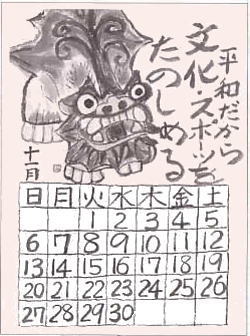 平和だから
文化・スポーツを
たのしめる
十一月
日 月 火 水 木 金 土
1 2 3 4 5
6 7 8 9 10 11 12
13 14 15 16 17 18 19
20 21 22 23 24 25 26
27 28 29 30